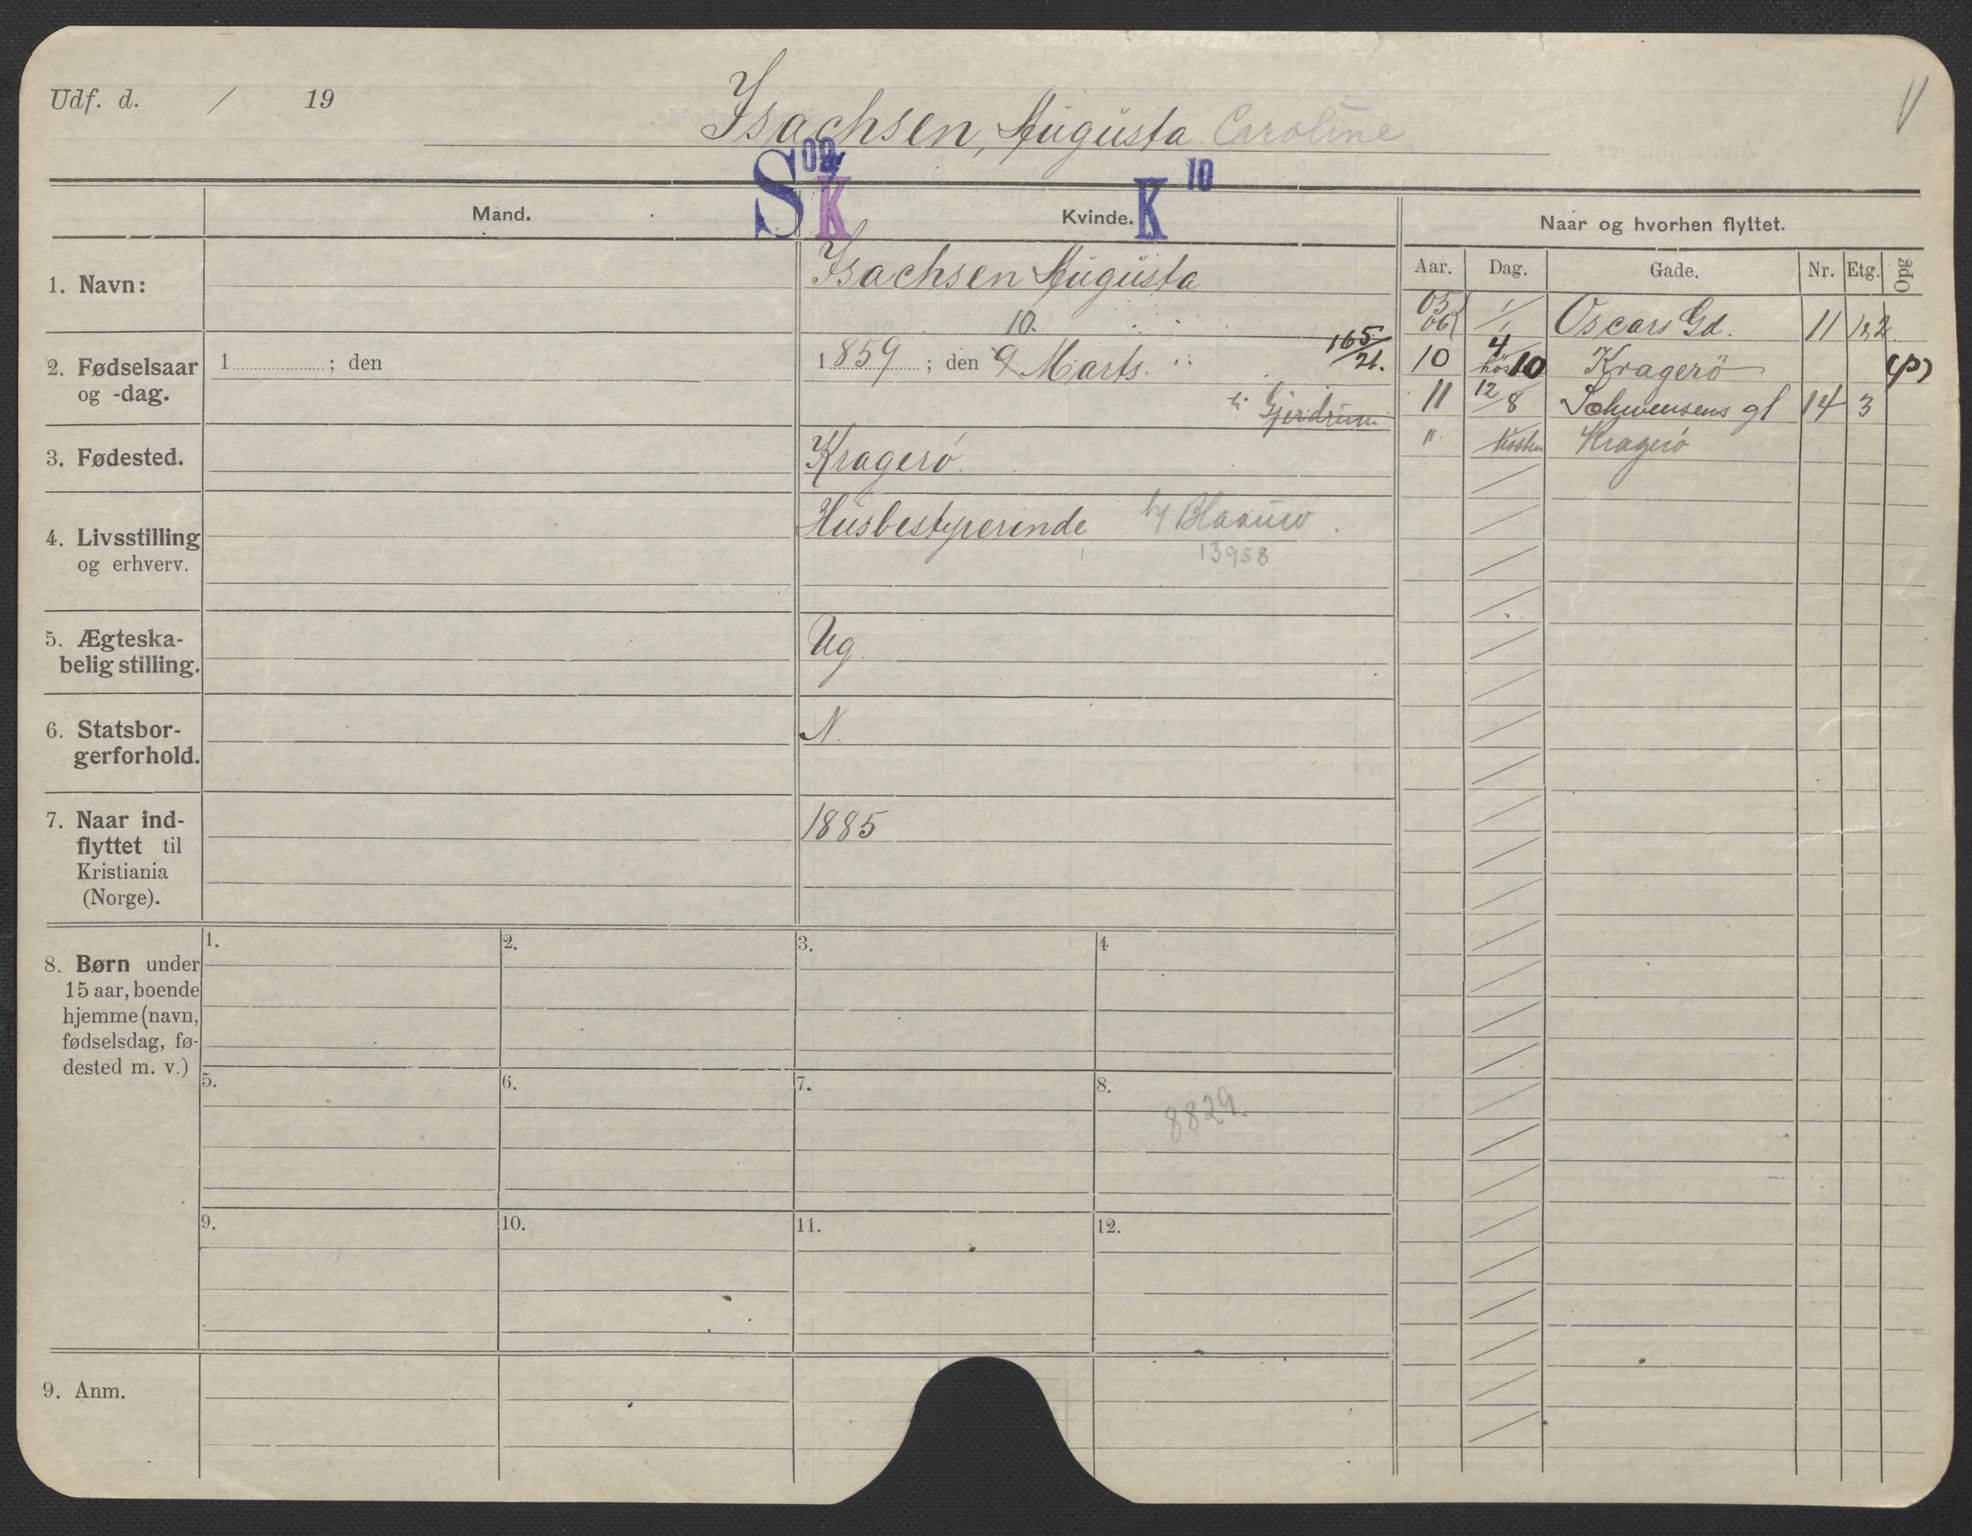 Udf. d. / 19
Isachsen, Augusta Caroline
V
S 00 K K 10
Mand. Kvinde. Naar og hvorhen flyttet.
Aar. Dag. Gade. Nr. Etg. Opg
1. Navn: Isachsen Augusta
05 06 1/1 Oscars Gd. 11
10.
2. Fødselsaar og -dag. 1 ; den 1859 ; den 9 Marts. 165/21.
10 4/10 Kragerö (P)
Gjerdrum
11 12/8 Schwensens gt 14 3
3. Fødested. Kragerø
" høsten Kragerø
4. Livsstilling og erhverv. Husbestyrerinde h/ Blaauw.
13958
5. Ægteska-
belig stilling. Ug.
6. Statsbor-
gerforhold. N.
7. Naar ind-
flyttet til
Kristiania
(Norge). 1885
8. Børn under
15 aar, boende
hjemme (navn,
fødselsdag, fø-
dested m. v.)
1. 2. 3. 4
5. 6. 7. 8.
8829.
9. 10. 11. 12.
9. Anm.